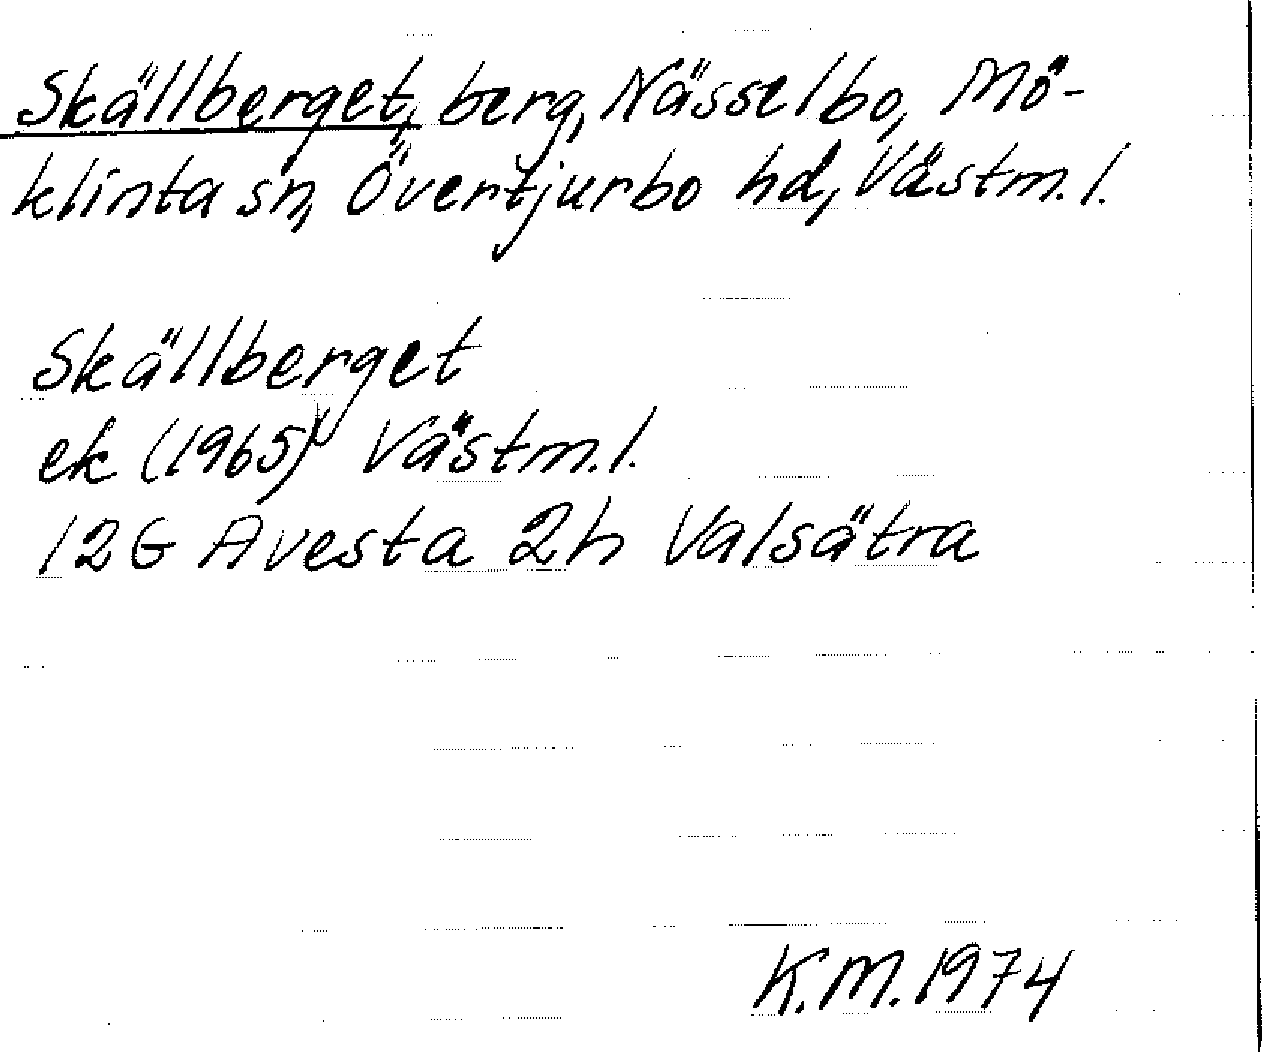 Skällberget, berg, Nässelbo, Mö-
klinta sn, Övertjurbo hd, Västm.l.
Skällberget
ek (1965) Västm.l.
12G Avesta 2h Valsätra
K.M. 1974